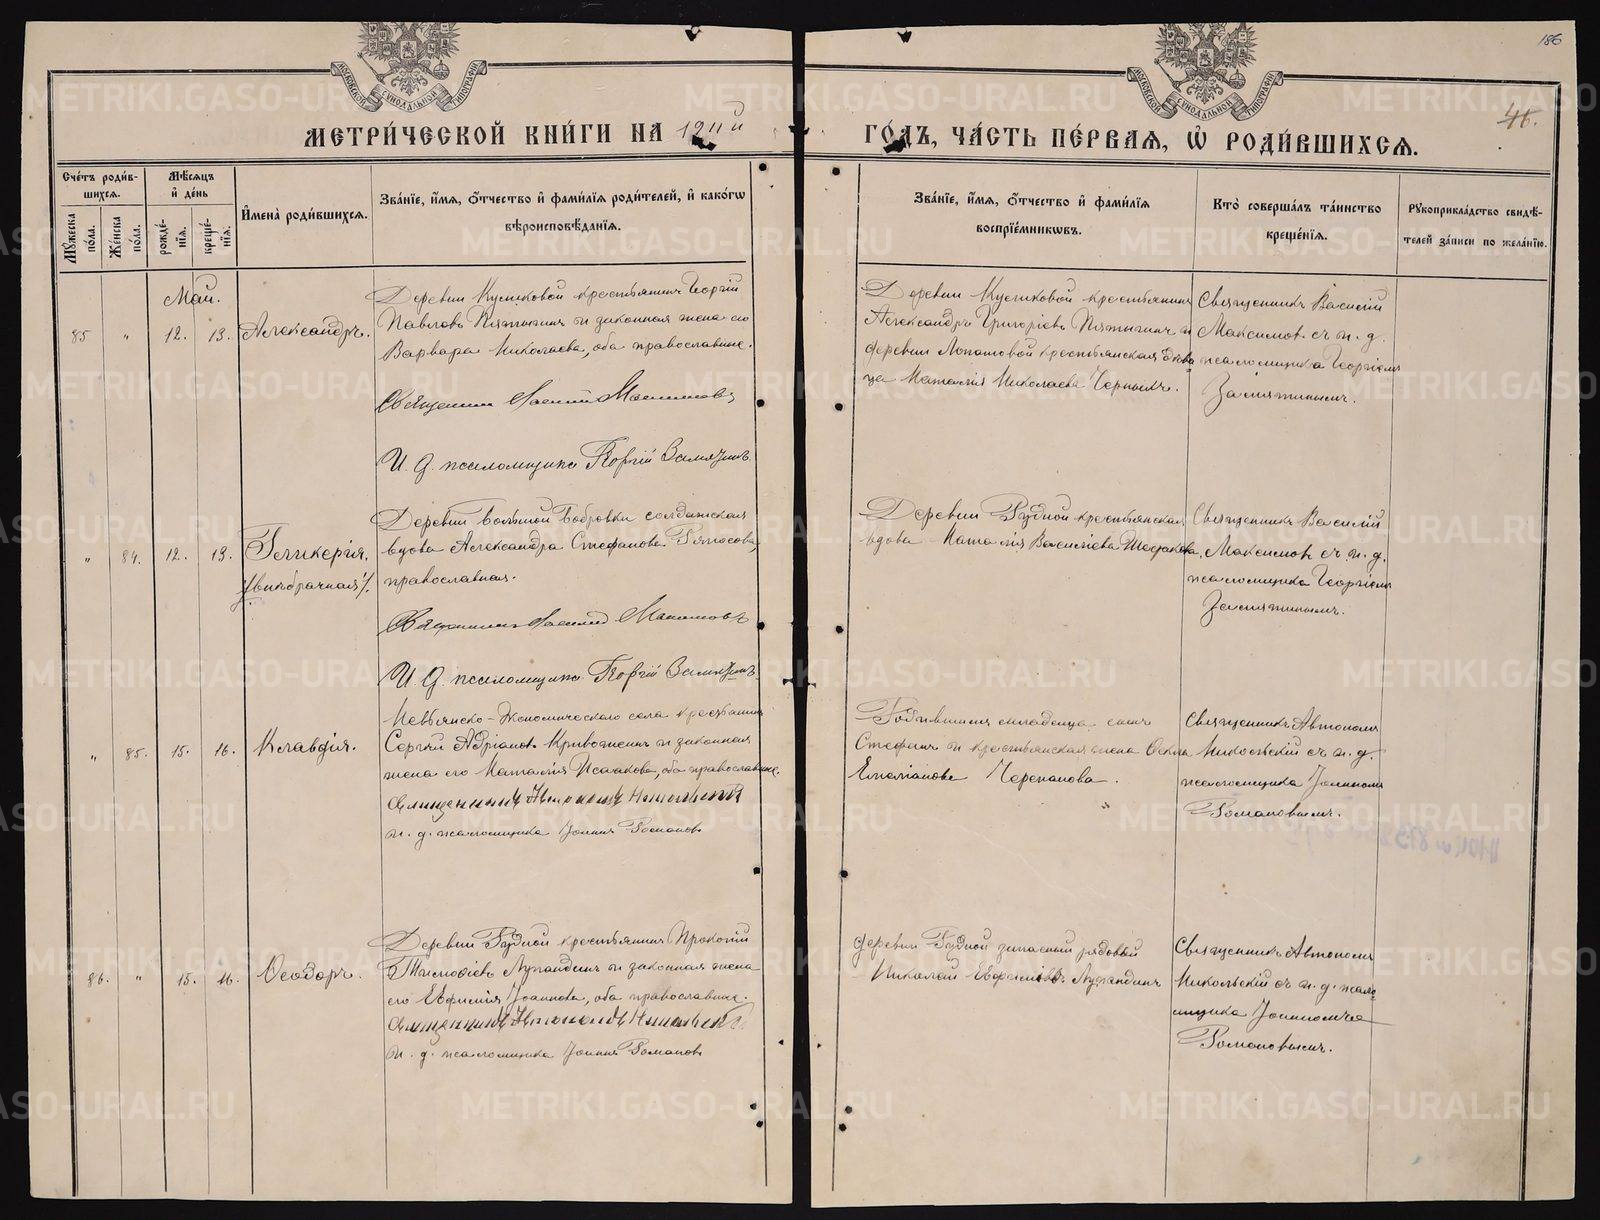 186
46.
МОСКОВСКОЙ СУНОДАЛЬНОЙ ТИПОГРАФІИ
МОСКОВСКОЙ СУНОДАЛЬНОЙ ТИПОГРАФІИ
МЕТРИ́ЧЕСКОЙ КНИ́ГИ НА 1911й ГО́ДЪ, ЧА́СТЬ ПЕ́РВАЯ, Ѡ҆ РОДИ́ВШИХСЯ.
Сче́тъ роди́в-
шихся.
Мѣ́сяцъ
и҆ де́нь
Мꙋ́жеска по́ла.
Же́нска по́ла.
рожде́-
нїя.
креще́-
нїя.
И҆мена̀ роди́вшихся.
Зва́нїе, и҆́мя, ѻ҆́тчество и҆ фами́лїя роди́телей, и҆ како́гѡ
вѣроисповѣ́данїя.
Зва́нїе, и҆́мя, ѻ҆́тчество и҆ фами́лїя
воспрїе́мникѡвъ.
Кто̀ соверша́лъ та́инство
креще́нїя.
Рꙋкоприкла́дство свидѣ́-
телей за́писи по жела́нїю.
Май.
85 " 12. 13. Александръ.
Деревни Куликовой крестьянинъ Георгій
Павловъ Пятыгинъ и законная жена его
Варвара Николаева, оба православные.
Священникъ Василій Максимовъ
И. д. псаломщика Георгій Замятинъ.
Деревни Куликовой крестьянинъ
Александръ Григоріевъ Пятыгинъ и
деревни Лопатовой крестьянская дѣви
ца Наталія Николаева Черныхъ.
Священникъ Василій
Максимовъ съ и. д.
псаломщика Георгіемъ
Замятинымъ.
" 84. 12. 13. Гликерія.
/внѣбрачная/.
Деревни Большой Бобровки солдатская
вдова Александра Стефанова Ряпосова,
православная.
Священникъ Василій Максимовъ
И. д. псаломщика Георгій Замятинъ.
Деревни Рудной крестьянская
вдова Наталія Василіева Шестакова
Священникъ Василій
Максимовъ съ и. д.
псаломщика Георгіемъ
Замятинымъ.
" 85. 15. 16. Клавдія.
Невьянско-Экономическаго села крестьянинъ
Сергій Адріановъ Кривоногихъ и законная
жена его Наталія Исаакова, оба православные.
Священникъ Автономъ Никольскій
и. д. псаломщика Іоаннъ Романовъ
Родившаго младенца сынъ
Стефанъ и крестьянская жена
Емеліанова Черепанова.
Священникъ Автономъ
Никольскій съ и. д.
псаломщика Іоанномъ
Романовымъ.
86. " 15. 16. Ѳеодоръ.
Деревни Рудной крестьянинъ Прокопій
Тимоѳіевъ Лупандинъ и законная жена
его Евфимія Іоаннова, оба православные.
Священникъ Автономъ Никольскій
и. д. псаломщика Іоаннъ Романовъ
деревни Рудной запасный рядовый
Николай Евфиміевъ Лупандинъ
Священникъ Автономъ
Никольскій съ и. д. псало
мщика Іоанномъ
Романовымъ.
METRIKI.GASO-URAL.RU